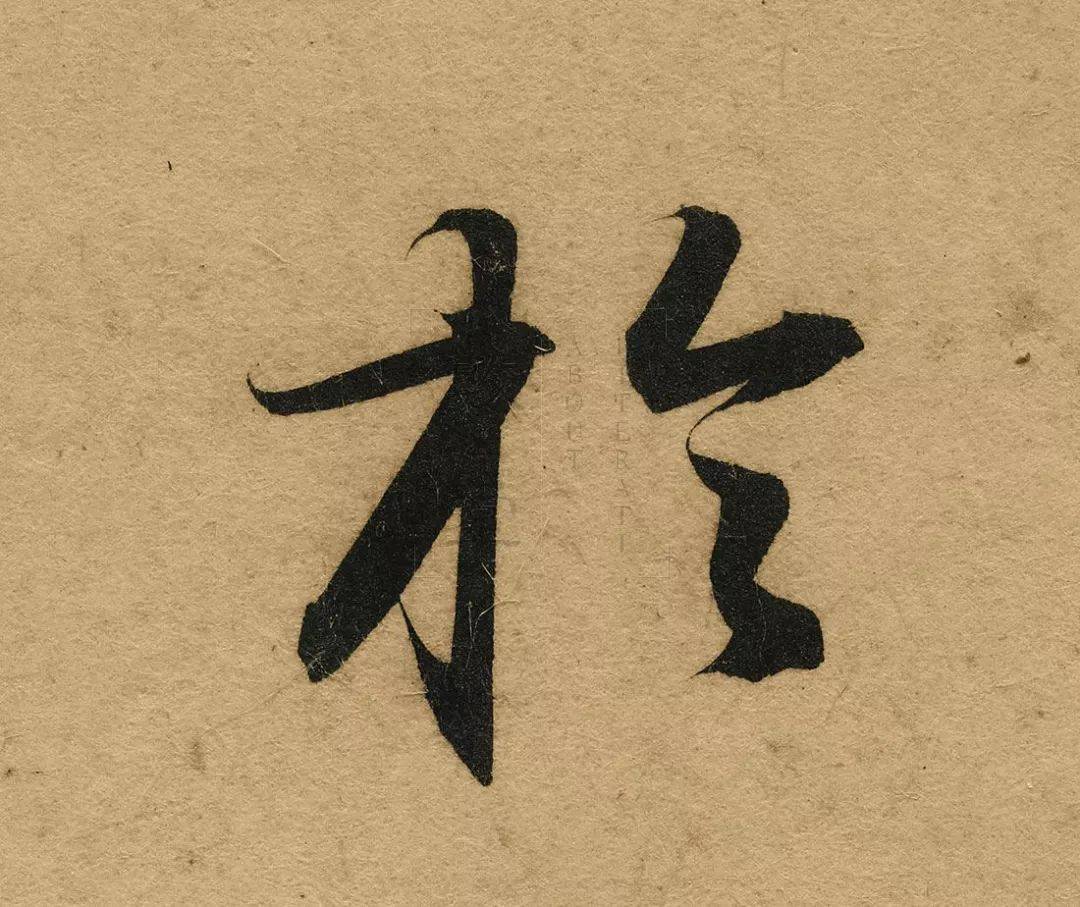 於
ABOUT
LITERATI